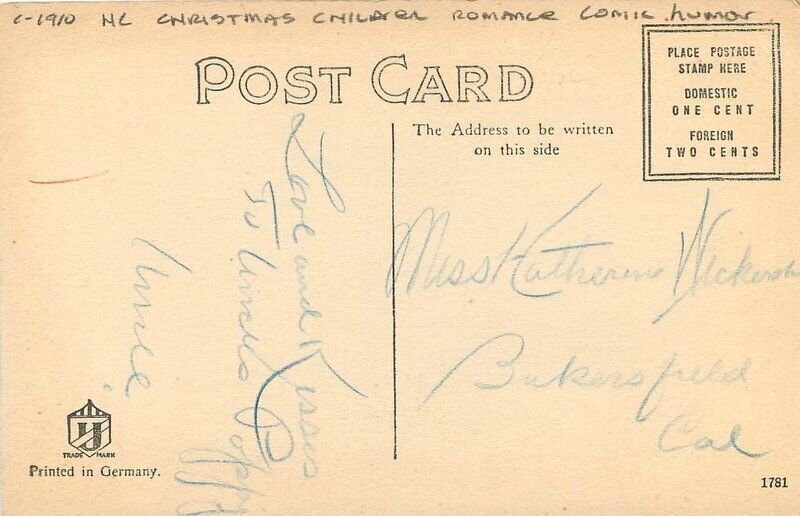 C-1910 HL CHRISTMAS CHILDREN ROMANCE COMIC humor
POST CARD
PLACE POSTAGE
STAMP HERE
DOMESTIC
ONE CENT
FOREIGN
TWO CENTS
The Address to be written
on this side
Love and Kisses
To Uncle's
Uncle
Miss Katherine
Bakersfield
Cal
TRADE MARK
Printed in Germany.
1781